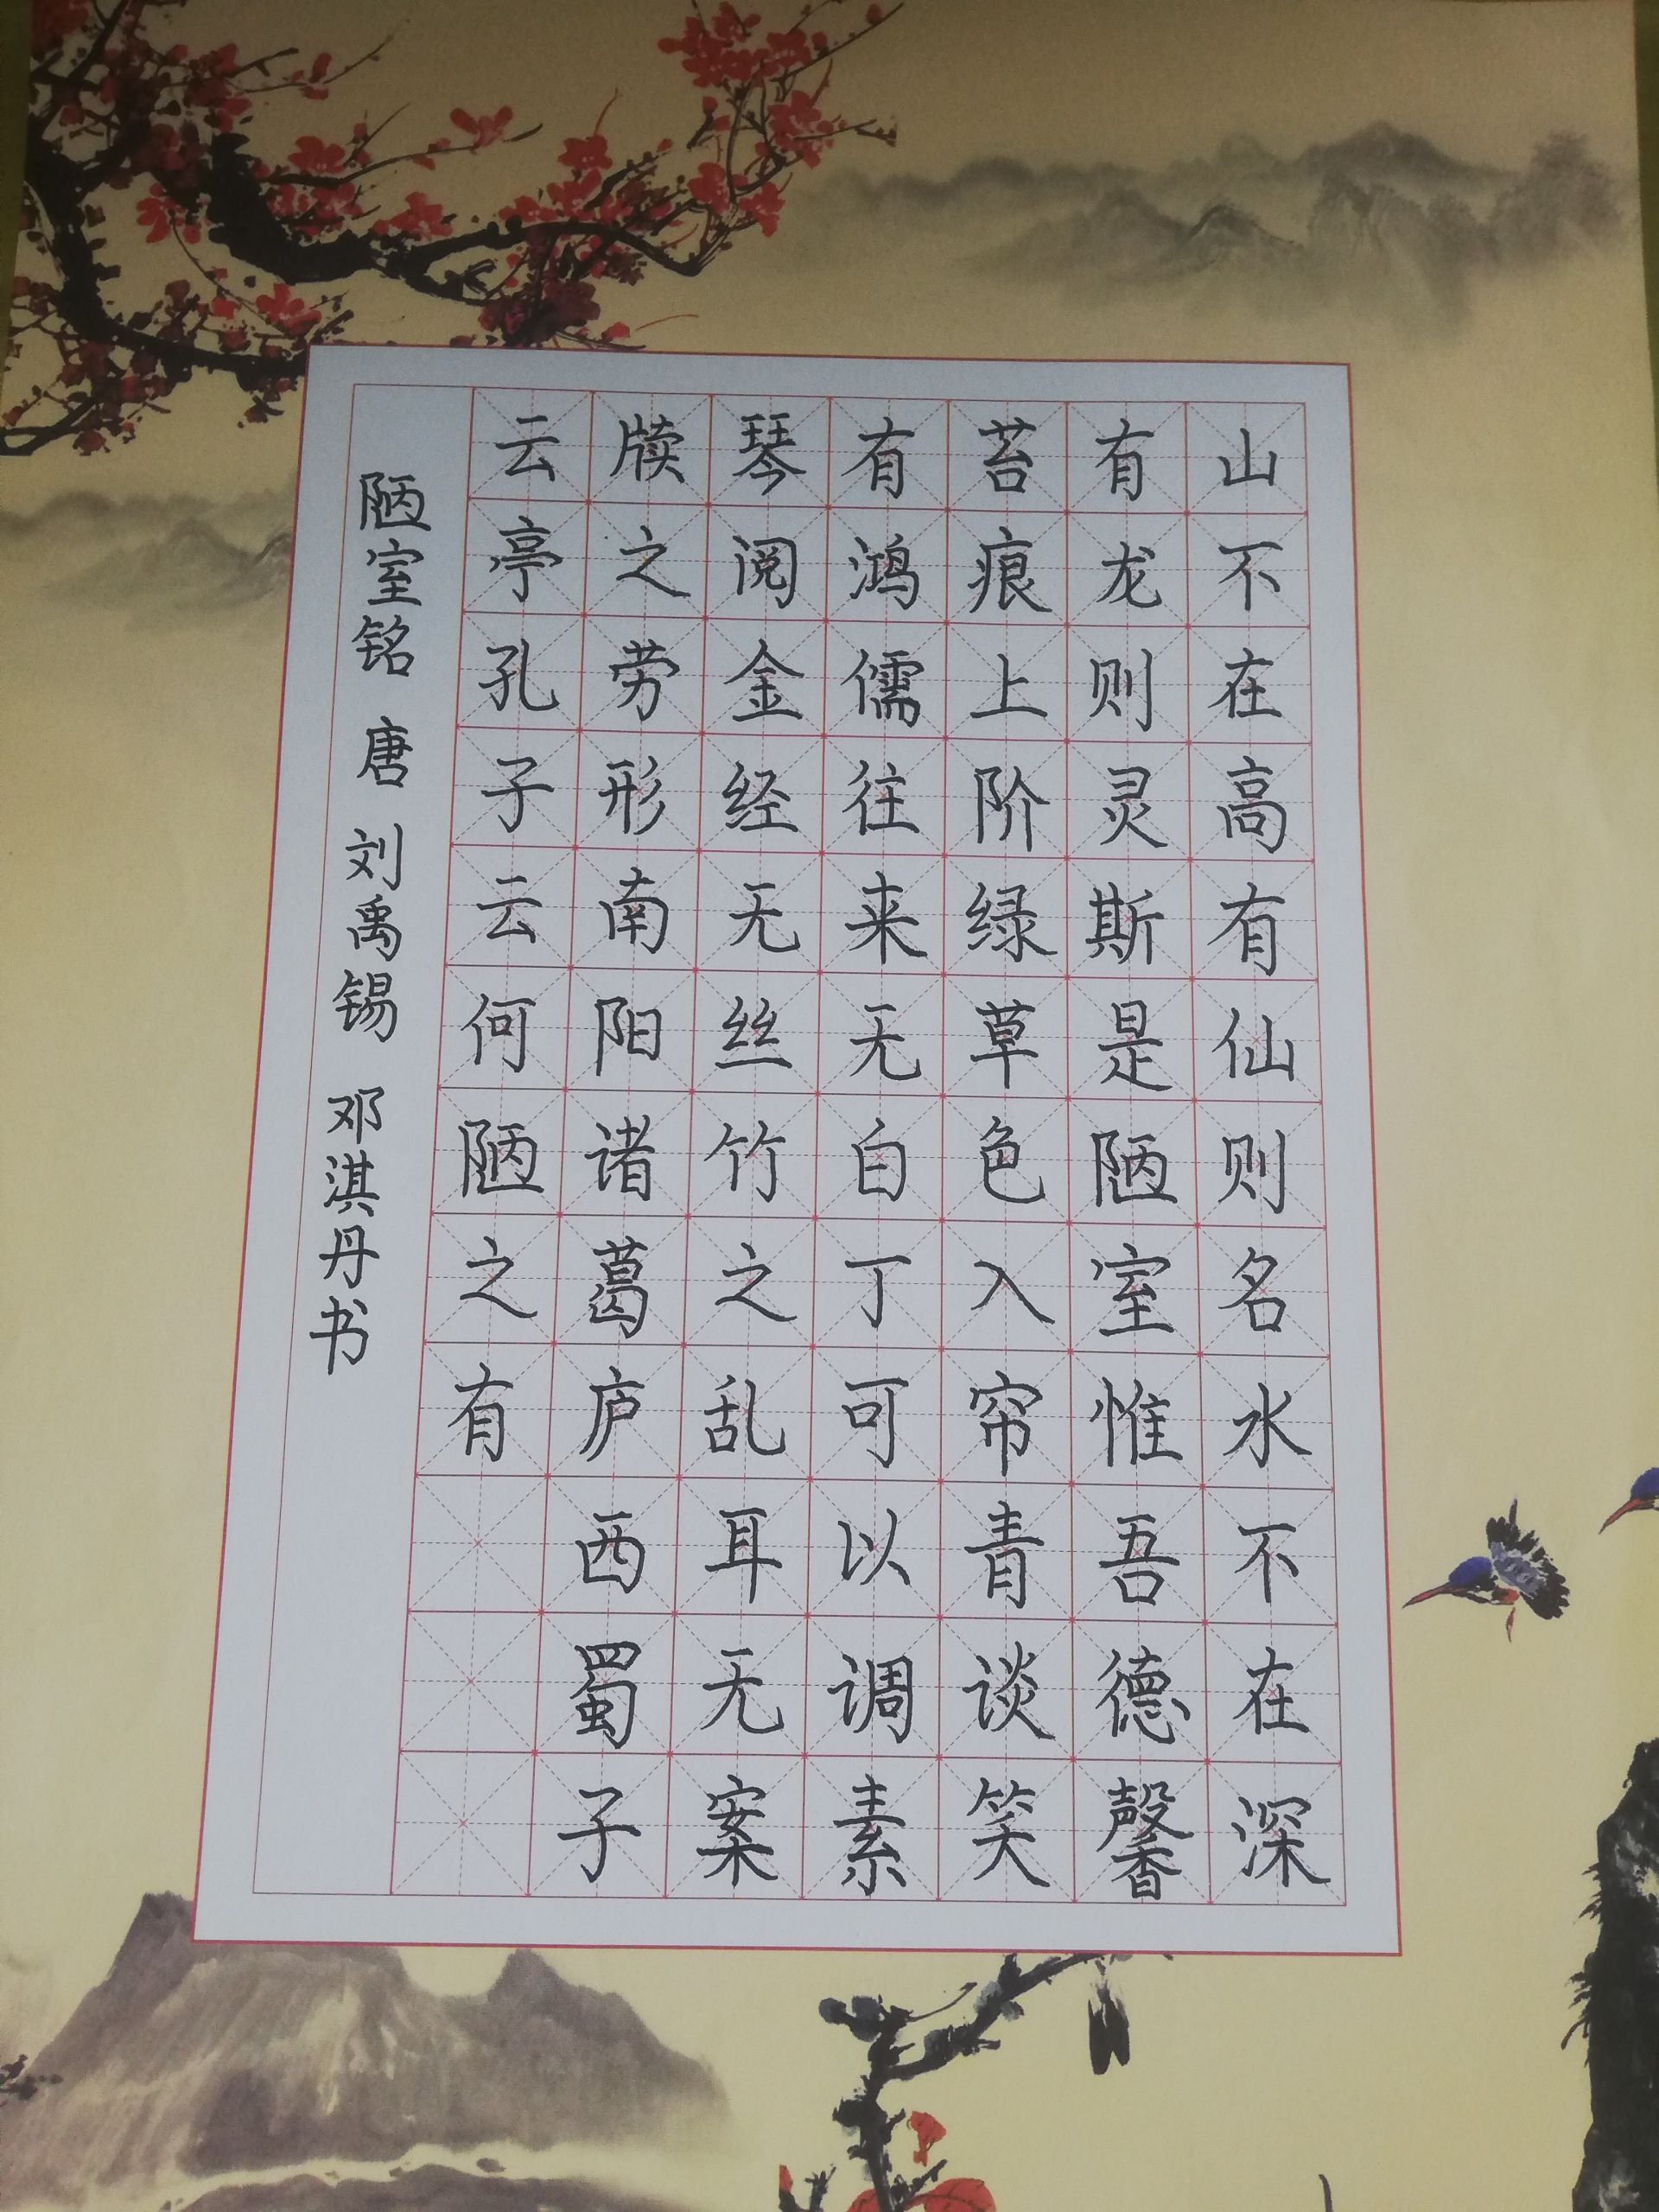 山不在高有仙则名水不在深
有龙则灵斯是陋室惟吾德馨
苔痕上阶绿草色入帘青谈笑
有鸿儒往来无白丁可以调素
琴阅金经无丝竹之乱耳无案
牍之劳形南阳诸葛庐西蜀子
云亭孔子云何陋之有
陋室铭 唐 刘禹锡 邓淇丹书